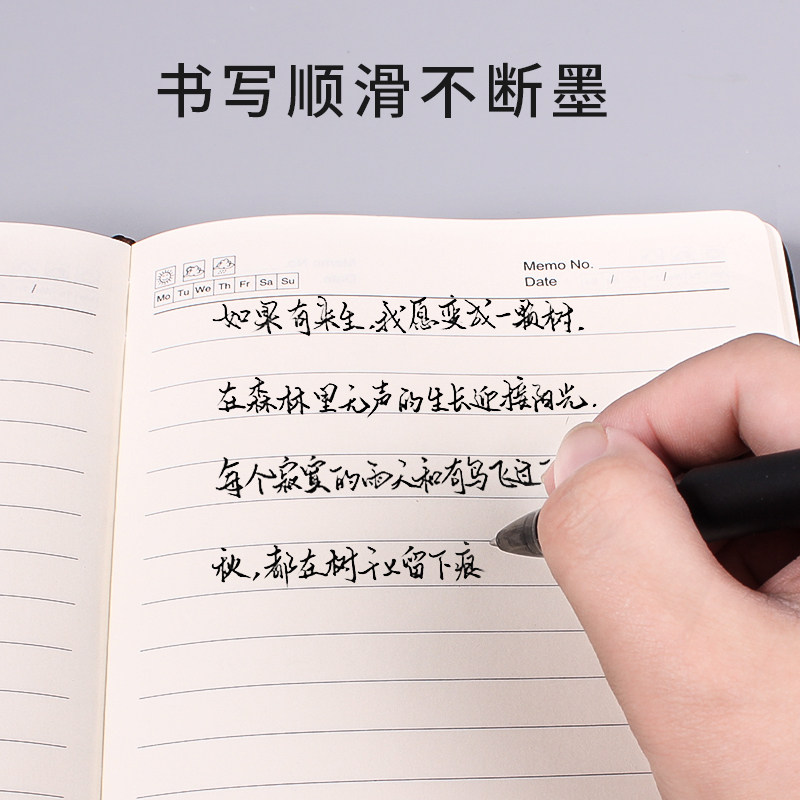 书写顺滑不断墨
Memo No.
Date / /
Mo Tu We Th Fr Sa Su
如果有来生,我愿变成一颗树.
在森林里无声的生长迎接阳光.
每个寂寞的雨天和有鸟飞过
秋,都在树干上留下痕